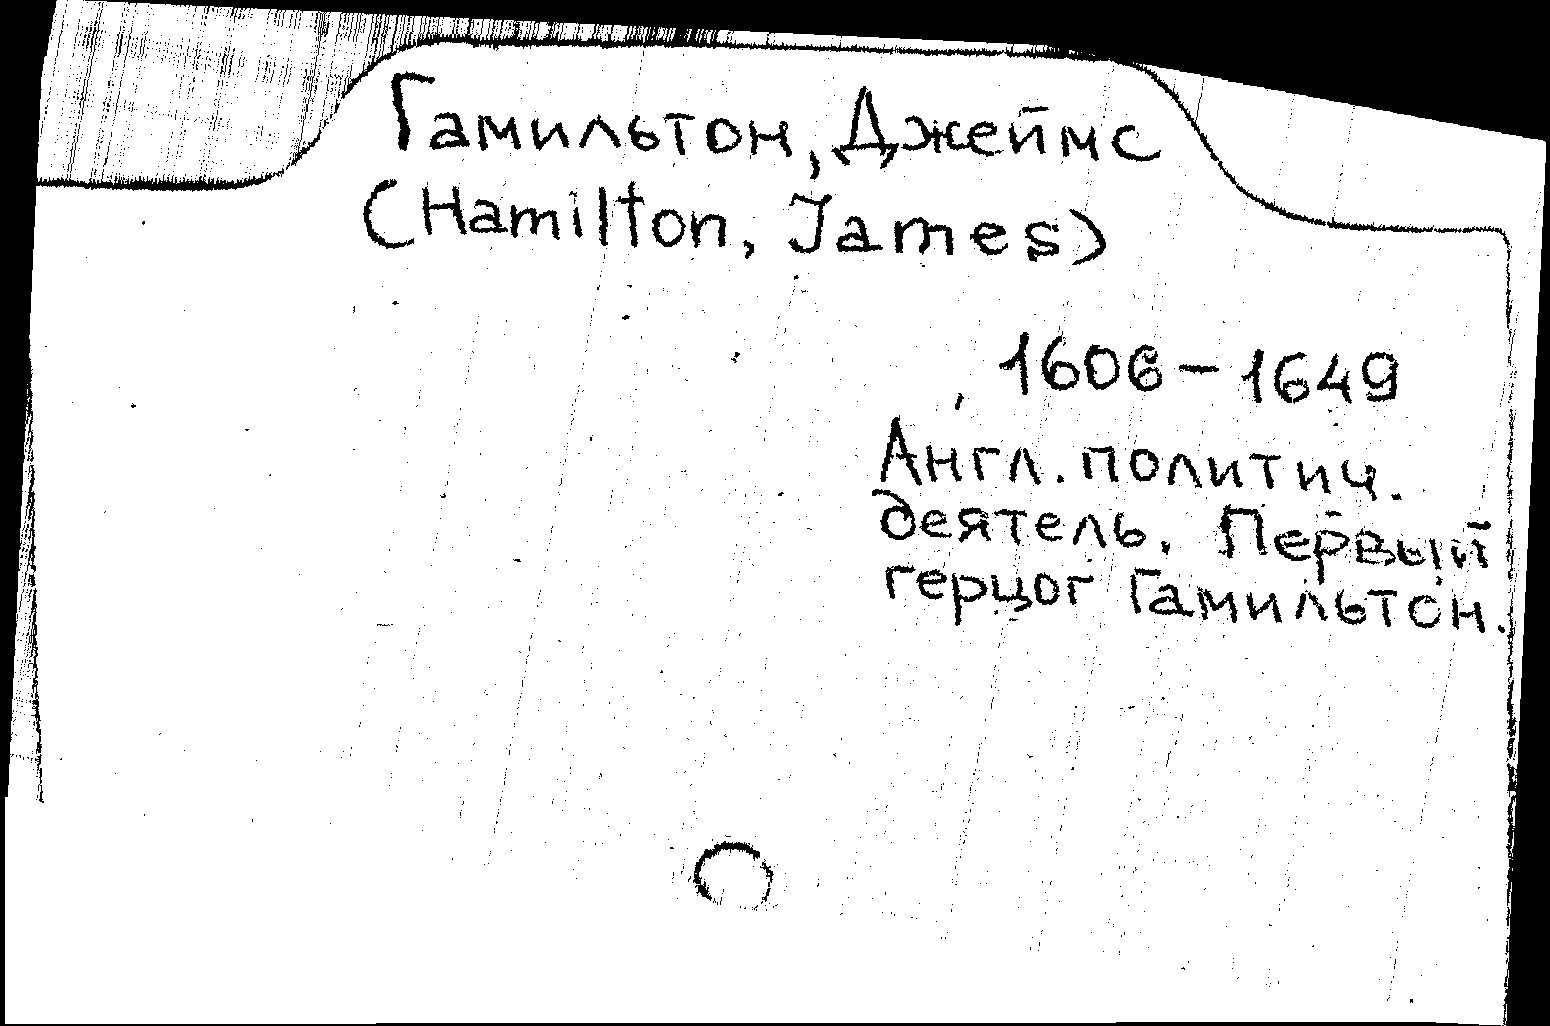 Гамильтон, Джеймс
(Hamilton, James)
1606 – 1649
Англ. политич.
деятель. Первый
герцог Гамильтон.